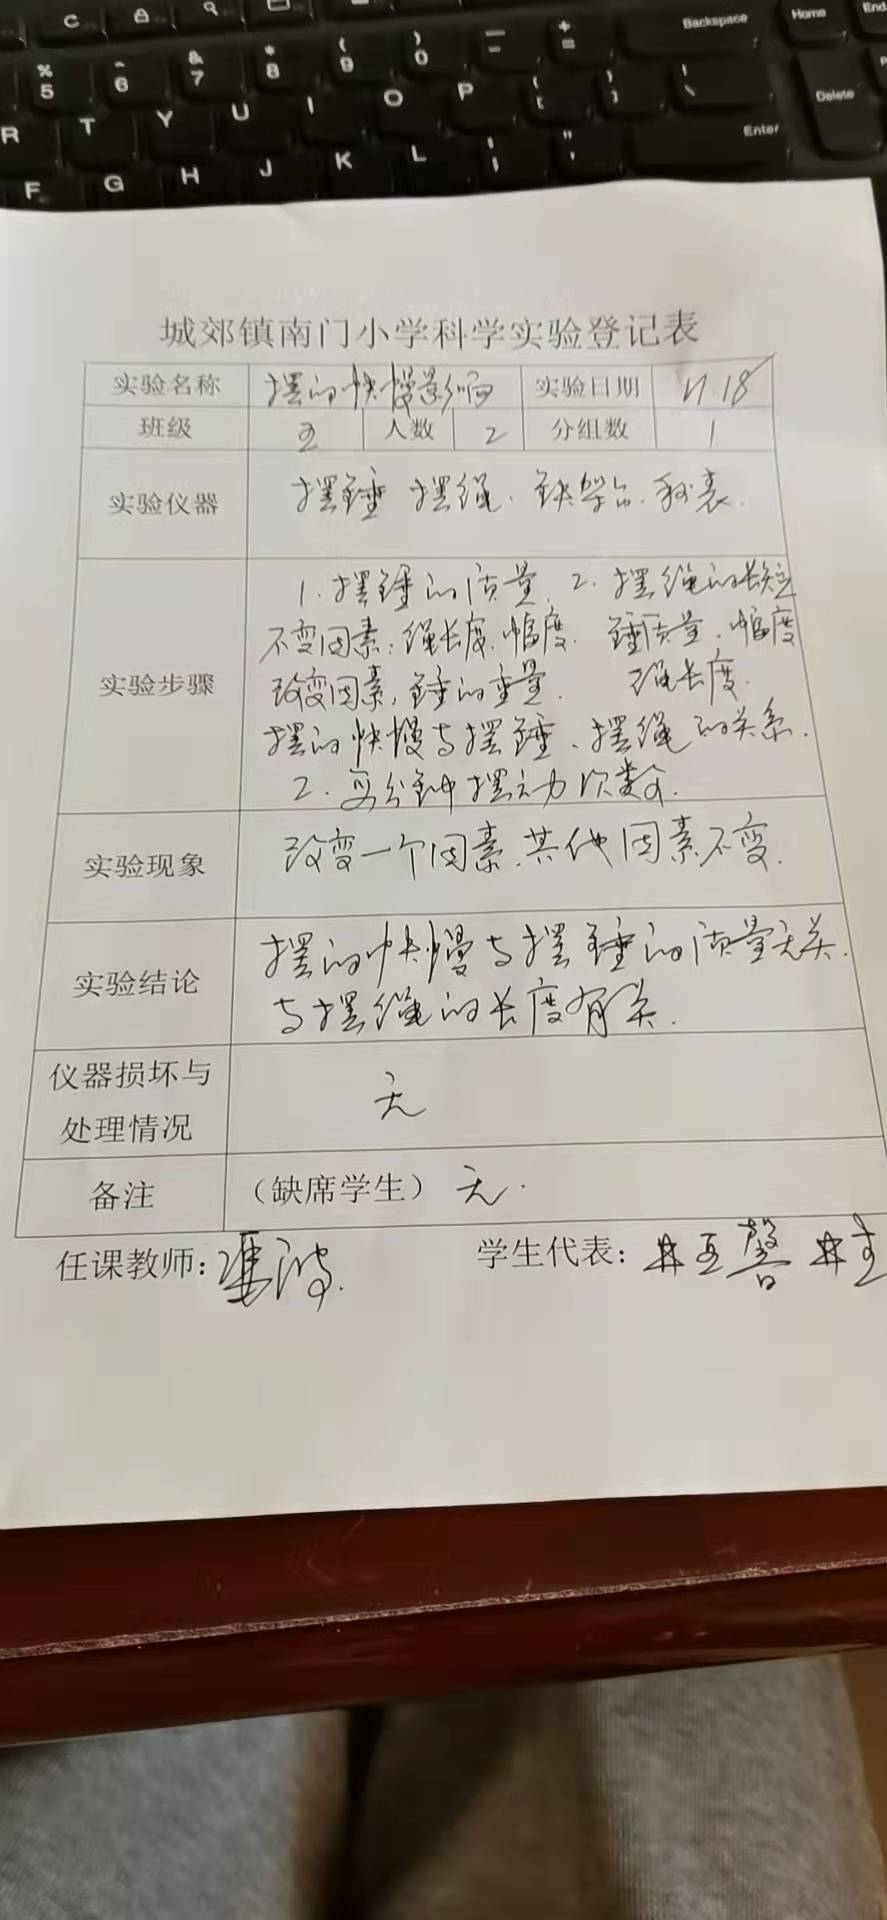 C
Backspace
Home
End
% 5
^ 6
& 7
* 8
( 9
) 0
— -
+ =
R T Y U I O P { [ } ] | \
Delete
F G H J K L : ; " '
Enter
城郊镇南门小学科学实验登记表
实验名称 摆的快慢影响 实验日期
班级 人数 2 分组数 1
实验仪器 摆锤 摆绳、铁架台、秒表.
实验步骤
1. 摆锤的质量 2. 摆绳的长短
不变因素:绳长度、幅度. 锤质量、幅度
改变因素,锤的重量. 绳长度.
摆的快慢与摆锤、摆绳的关系.
2. 每分钟摆动次数.
实验现象 改变一个因素,其他因素不变.
实验结论
摆的快慢与摆锤的质量无关.
与摆绳的长度有关.
仪器损坏与
处理情况
无
备注 (缺席学生) 无.
任课教师:冯波. 学生代表: